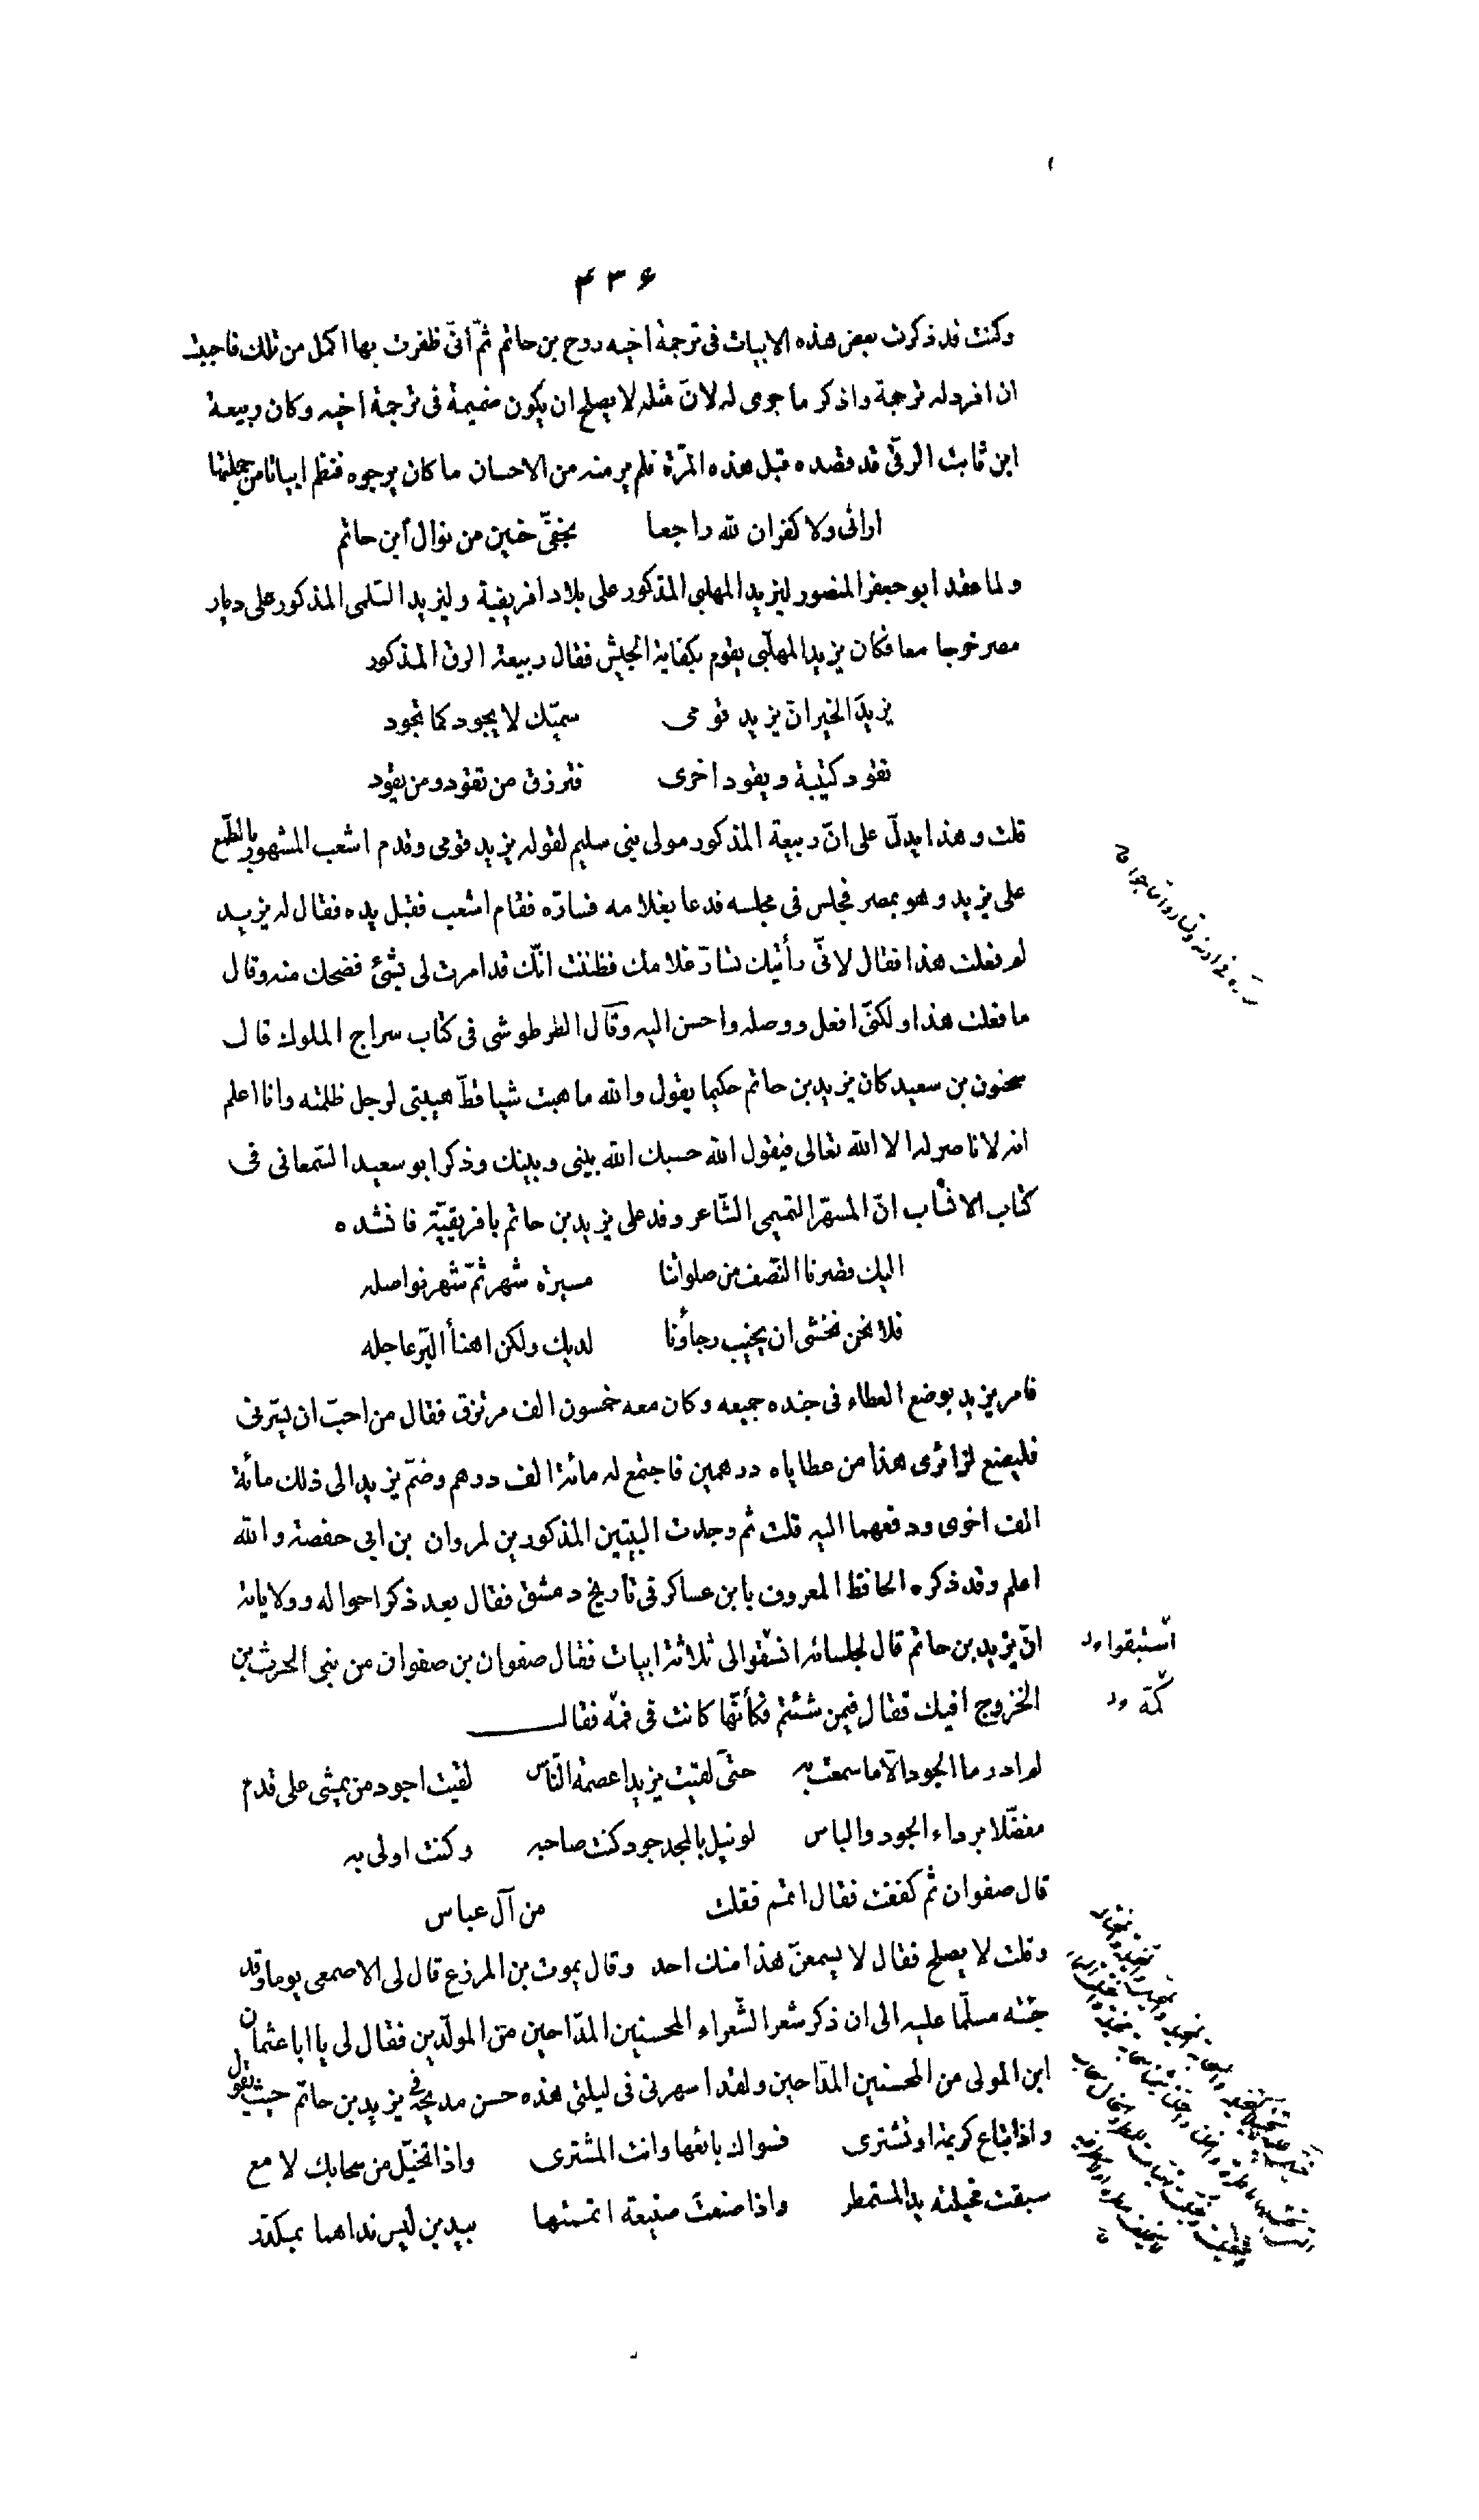 ۴۳۶
وكنت قد ذكرت بعض هذه الابيات فى ترجمة اخيه روح بن حاتم ثمّ انّى ظفرت بها اكمل من تلك فاحببت
ان افرد له ترجمة واذكر ما جرى له لانّ مثله لا يصلح ان يكون ضميمة فى ترجمة اخيه وكان ربيعة
ابن ثابت الرقّى قد قصده قبل هذه المرّة فلم ير منه من الاحسان ما كان يرجوه فنظم ابياتا من جملتها
ارانى ولا كفران لله راجعا بخفّى حنين من نوال ابن حاتم
ولما عقد ابو جعفر المنصور ليزيد المهلبى المذكور على بلاد افريقية وليزيد السّلمى المذكور على ديار
مصر خرجا معا فكان يزيد المهلّبى يقوم بكفاية الجيش فقال ربيعة الرقى المذكور
يزيد الخير انّ يزيد قومى سميّك لا يجود كما تجود
تقود كتيبة ويقود اخرى فترزق من تقود ومن يقود
قلت وهذا يدلّ على انّ ربيعة المذكور مولى بنى سليم لقوله يزيد قومى وقدم اشعب المشهور بالطّمع
على يزيد وهو بمصر فجلس فى مجلسه فدعا بغلامه فسارّه فقام اشعب فقبل يده فقال له يزيد
لم فعلت هذا فقال لانّى رأيتك تسارّ غلامك فظننت انّك قد امرت لى بشئ فضحك منه وقال
ما فعلت هذا ولكنّى افعل ووصله واحسن اليه وقال الطرطوشى فى كتاب سراج الملوك قال
سحنون بن سعيد كان يزيد بن حاتم حكيما يقول والله ما هبت شيا قطّ هيبتى لرجل ظلمته وانا اعلم
انه لا ناصر له الا الله تعالى فيقول الله حسبك الله بينى وبينك وذكر ابو سعيد السّمعانى فى
كتاب الانساب انّ المسهّر التميمى الشّاعر وفد على يزيد بن حاتم بافريقيّة فانشده
اليك قصرنا النّصف من صلواتنا مسيرة شهر ثمّ شهر نواصله
فلا نحن نخشى ان يخيب رجاؤنا لديك ولكن اهنأ البرّ عاجله
فامر يزيد بوضع العطاء فى جنده جميعه وكان معه خمسون الف مرتزق فقال من احبّ ان يسرّنى
فليضع لزائرى هذا من عطاياه درهمين فاجتمع له مائة الف درهم وضمّ يزيد الى ذلك مائة
الف اخرى ودفعهما اليه قلت ثم وجدت البيتين المذكورين لمروان بن ابى حفصة والله
اعلم وقد ذكره الحافظ المعروف بابن عساكر فى تاريخ دمشق فقال بعد ذكر احواله وولاياته
انّ يزيد بن حاتم قال لجلسائه انسقوا لى ثلاثة ابيات فقال صفوان بن صفوان من بنى الحرث بن
استبقوا
الخزرج افيك فقال فيمن شئتم فكأنّها كانت فى فمّه فقال
كمّه
لم ادر ما الجود الّا ما سمعت به حتّى لقيت يزيدا عصمة النّاس لقيت اجود من يمشى على قدم
مفضّلا برداء الجود والباس لو نيل بالمجد جود كنت صاحبه وكنت اولى به
قال صفوان ثم كففت فقال اتمم فقلت من آل عباس
وقلت لا يصلح فقال لا يسمعنّ هذا منك احد وقال يموت بن المرزع قال لى الاصمعى يوما وقد
جئته مسلّما عليه الى ان ذكر شعر الشّعراء المحسنين المدّاحين من المولّدين فقال لى يا ابا عثمان
ابن المولى من المحسنين المدّاحين ولقد اسهرنى فى ليلتى هذه حسن مديحه فى يزيد بن حاتم حيث يقول
واذا تباع كريمة او تشترى فسواك بائعها وانت المشترى واذا تخيّل من سحابك لامع
سبقت مخيلته يد المستمطر واذا صنعت صنيعة اتممتها بيدين ليس نداهما بمكدّر